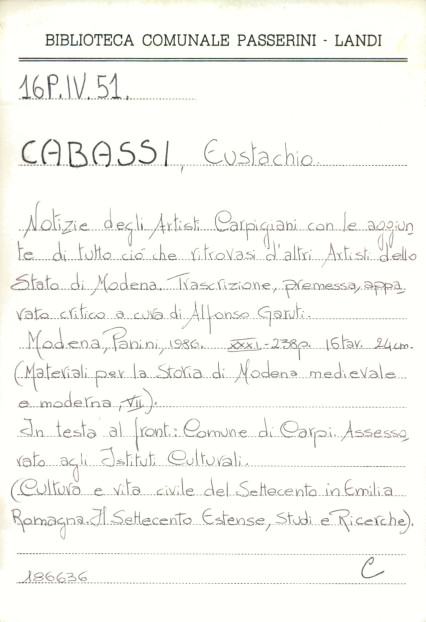 BIBLIOTECA COMUNALE PASSERINI - LANDI
16P.IV.51.
CABASSI, Eustachio
Notizie degli Artisti Carpigiani con le aggiun
te di tutto ciò che ritrovasi d'altri Artisti dello
Stato di Modena. Trascrizione, premessa, appa
rato critico a cura di Alfonso Garuti.
Modena, Panini, 1986. XXXI-238p. 16tav. 24cm.
(Materiali per la Storia di Modena medievale
e moderna, VII).
In testa al front.: Comune di Carpi. Assesso
rato agli Istituti Culturali.
(Cultura e vita civile del Settecento in Emilia
Romagna. Il Settecento Estense, Studi e Ricerche).
186636
C